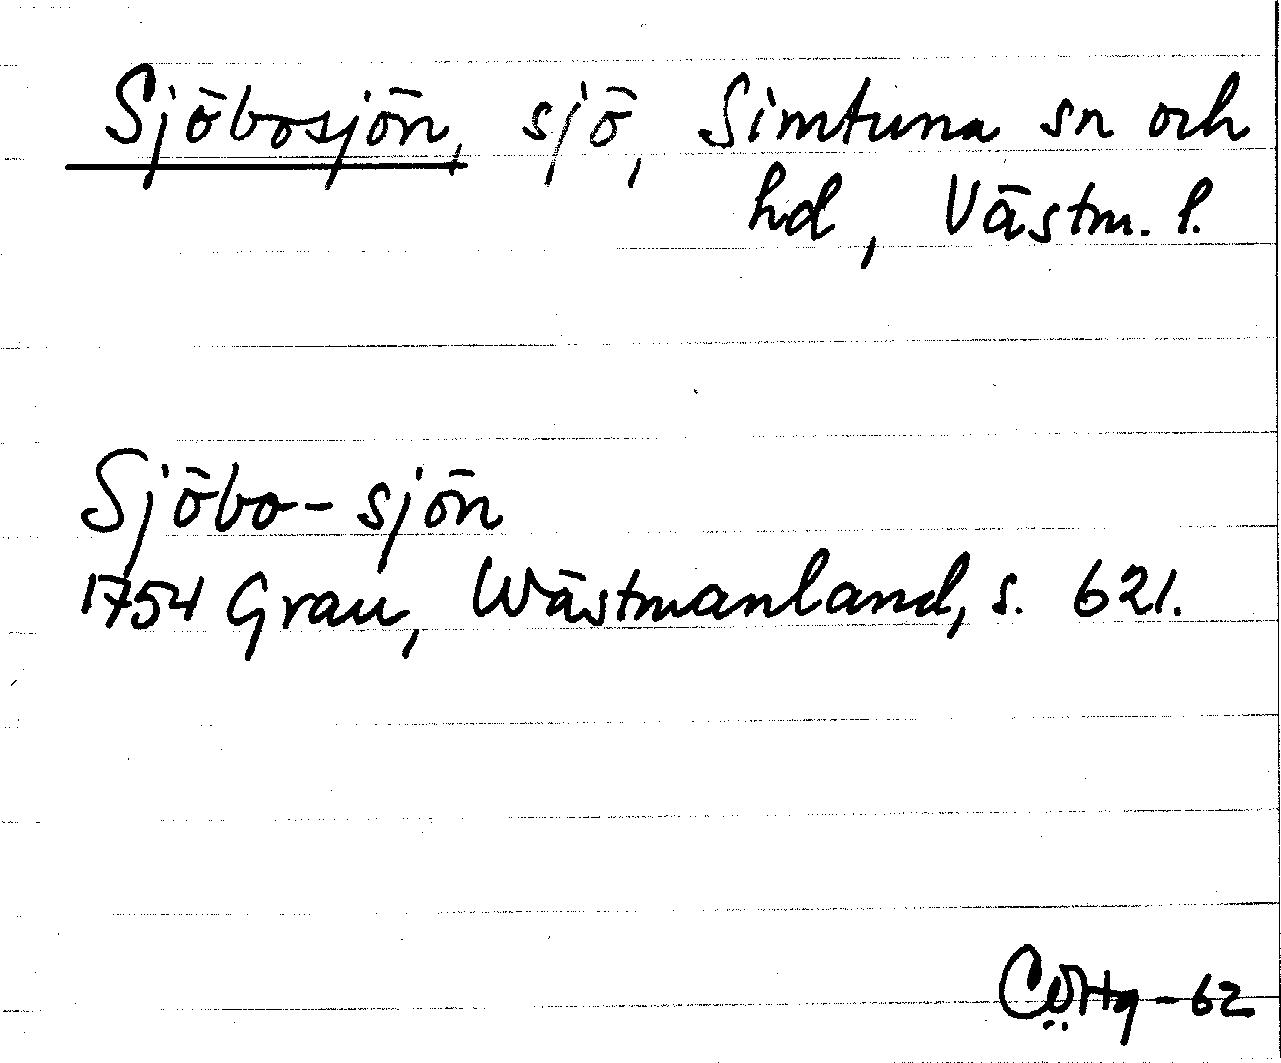 Sjöbosjön, sjö, Simtuna sn och
hd, Västm. l.
Sjöbo-sjön
1754 Grau, Wästmanland, s. 621.
-62